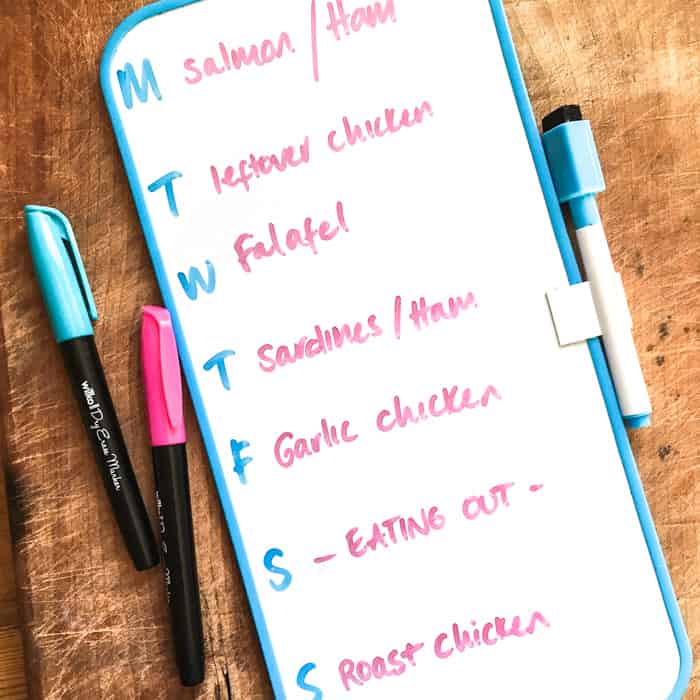 M salmon / Ham
T leftover chicken
W Falafel
T Sardines / Ham
F Garlic chicken
S - EATING OUT -
S Roast chicken
wilko Dry Erase Marker